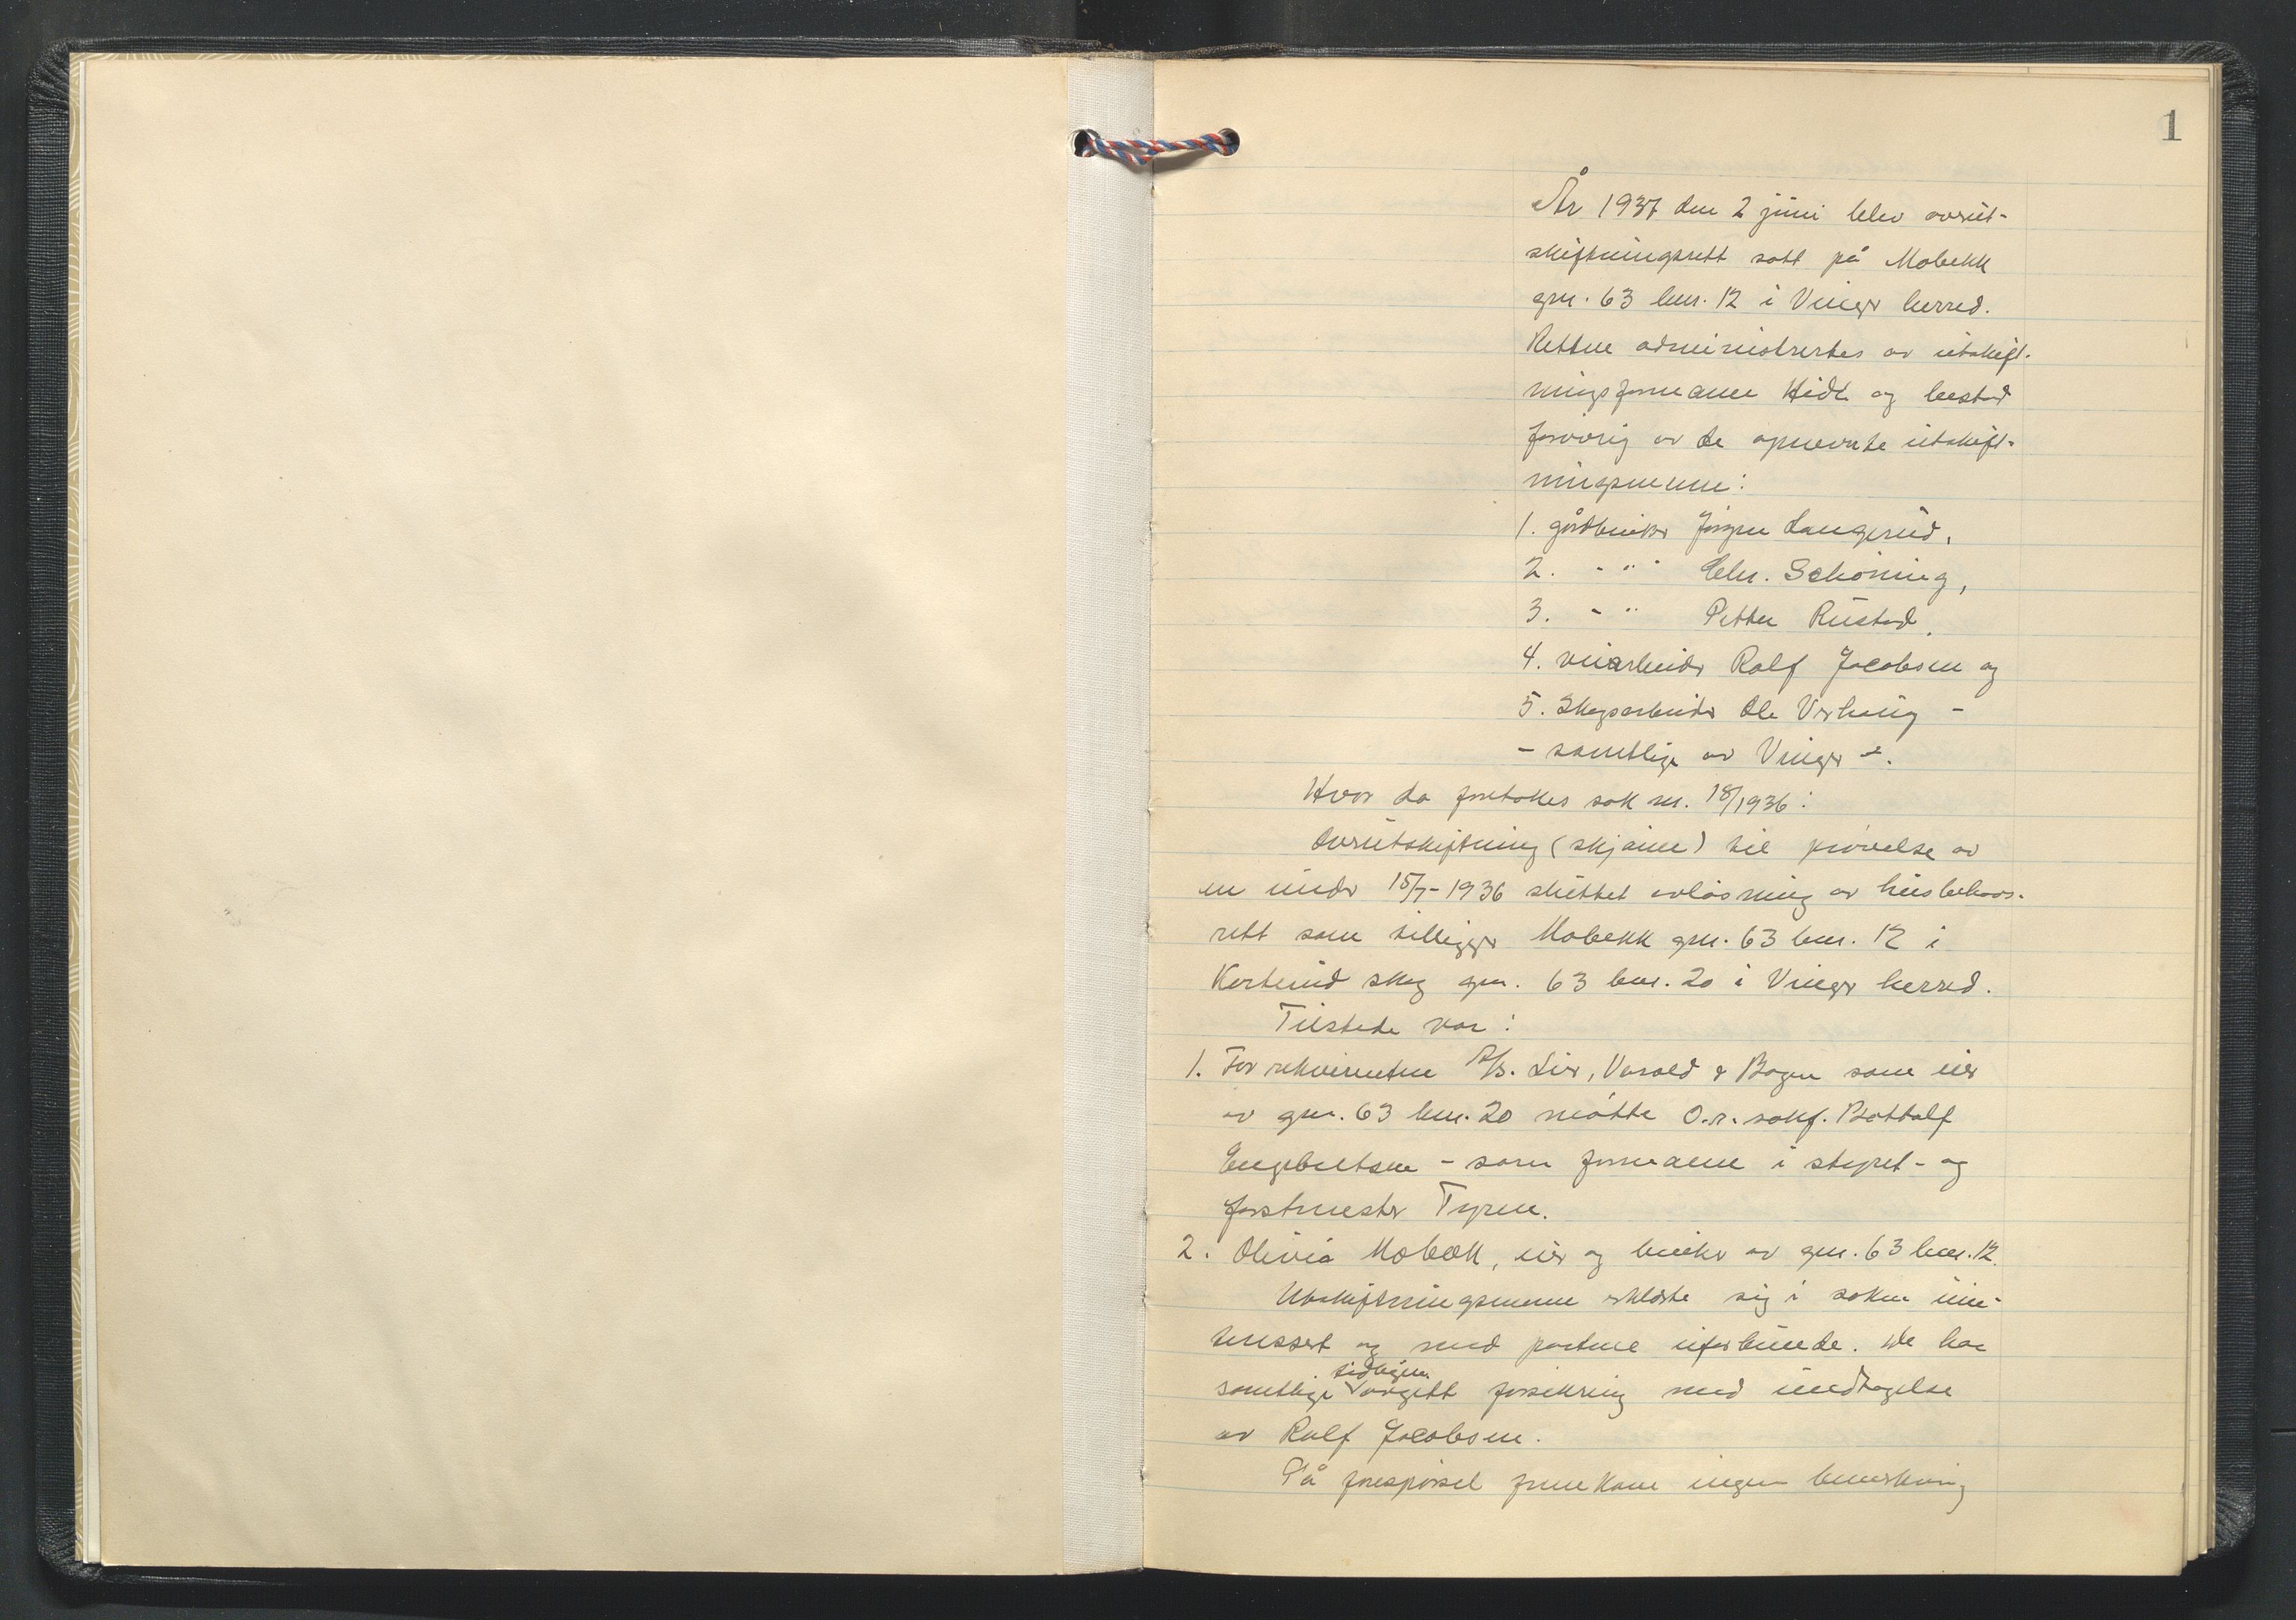 1
År 1937 den 2 juni blev overut-
skiftningsrett satt på Mobekk
gnr. 63 bnr. 12 i Vinger herred.
Retten administrertes av utskift-
ningsformann Hidle og bestod
forøvrig av de opnevnte utskift-
ningsmenn:
1. gårdbruker Jörgen Langerud,
2. - " - Chr. Schöning,
3. - " Petter Rustad,
4. veiarbeider Rolf Jacobsen og
5. Skogsarbeider Ole Verhaug -
- samtlige av Vinger -.
Hvor da foretokes sak nr. 18/1936:
Overutskiftning (skjönn) til prövelse av
en under 15/7-1936 sluttet avlösning av husbehovs-
rett som tilligger Mobekk gnr. 63 bnr. 12 i
Korterud skog gnr. 63 bnr. 20 i Vinger herred.
Tilstede var:
1. For rekvirenten A/S. Lier, Varald & Bogen som eier
av gnr. 63 bnr. 20 mötte O.r. sakf. Bottolf
Engebretsen - som formann i styret - og
forstmester Tyren.
2. Olivia Mobæk, eier og bruker av gnr. 63 bnr. 12.
Utskiftningsmennene erklærte sig i saken uin-
teressert og med partene uforbundne. De har
tidligere
samtlige avgitt forsikring med undtagelse
av Rolf Jacobsen.
På forespörsel fremkom ingen bemerkning